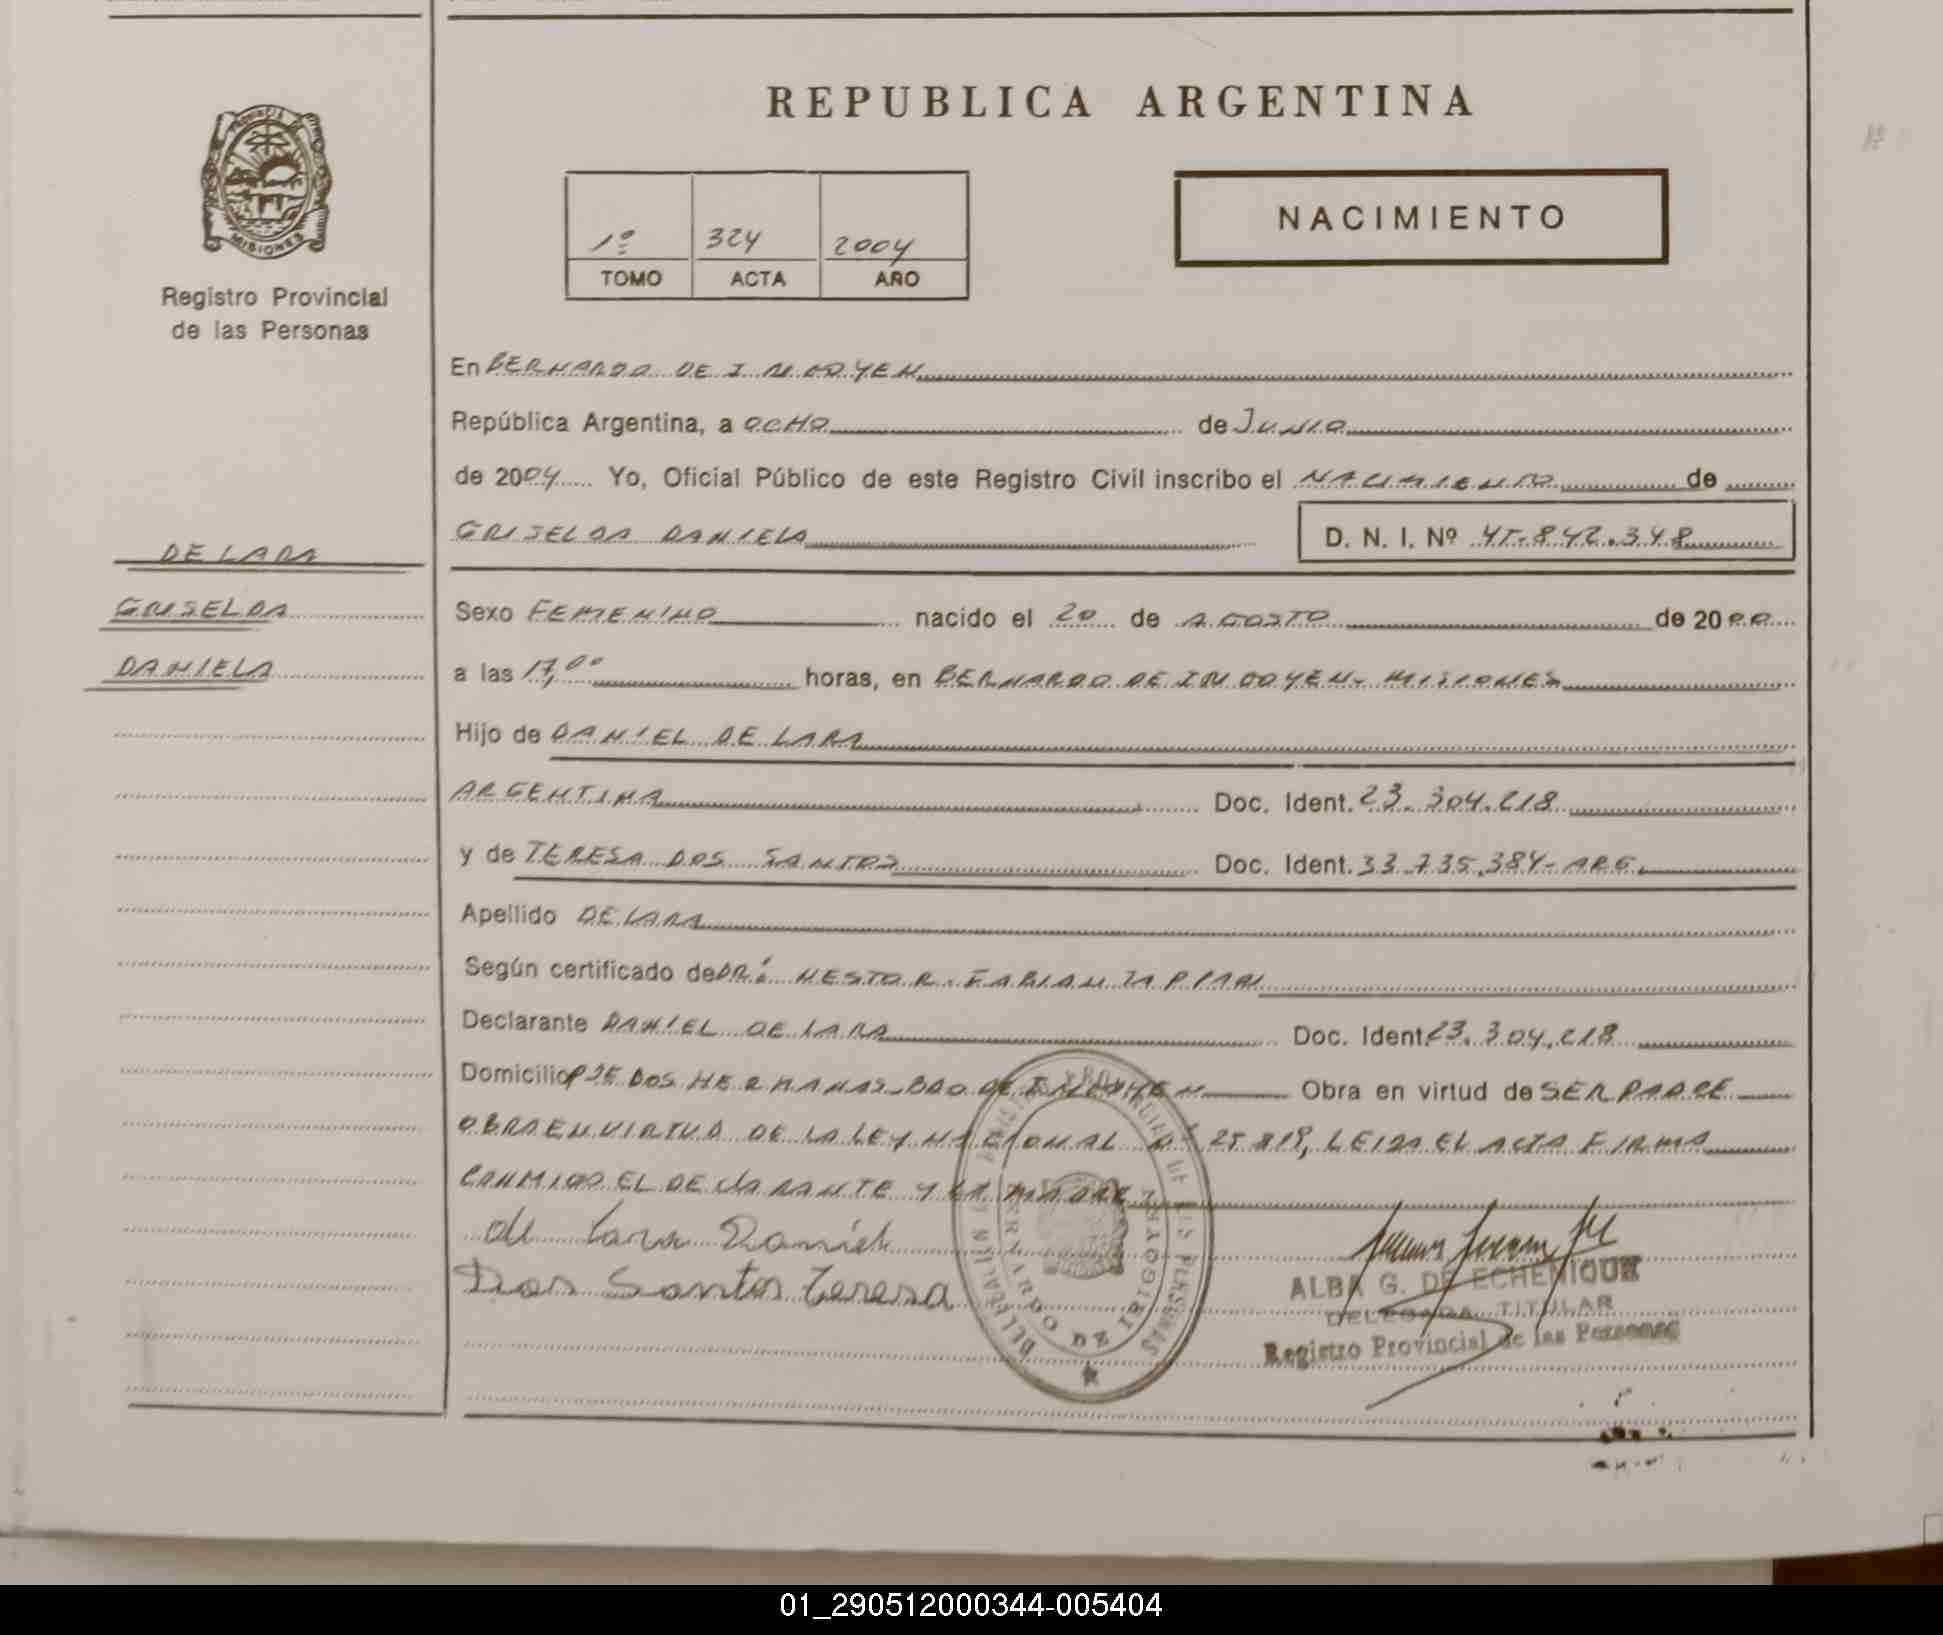 REPUBLICA ARGENTINA
PROVINCIA DE
MISIONES
Registro Provincial
de las Personas
1º 324 2004
TOMO ACTA AÑO
NACIMIENTO
En BERNARDO DE IRIGOYEN
República Argentina, a OCHO de JUNIO
de 2004 Yo, Oficial Público de este Registro Civil inscribo el NACIMIENTO de
GRISELDA DANIELA D. N. I. Nº 45.842.348
DE LARA
GRISELDA
DANIELA
Sexo FEMENINO nacido el 20 de AGOSTO de 2000
a las 17,00 horas, en BERNARDO DE IRIGOYEN - MISIONES
Hijo de DANIEL DE LARA
ARGENTINA Doc. Ident. 23.304.218
y de TERESA DOS SANTOS Doc. Ident. 33.735.384 - ARG.
Apellido DE LARA
Según certificado de DR. NESTOR FABIAN
Declarante DANIEL DE LARA Doc. Ident. 23.304.218
Domicilio PJE DOS HERMANAS - BDO DE IRIGOYEN Obra en virtud de SER PADRE
OBRA EN VIRTUD DE LA LEY NACIONAL Nº 25.819, LEIDA EL ACTA FIRMA
CONMIGO EL DECLARANTE Y LA MADRE
de Lara Daniel
Dos Santos Teresa
REGISTRO PROVINCIAL DE LAS PERSONAS
BERNARDO DE IRIGOYEN
ALBA G. DE ECHENIQUE
DELEGADA TITULAR
Registro Provincial de las Personas
01_290512000344-005404